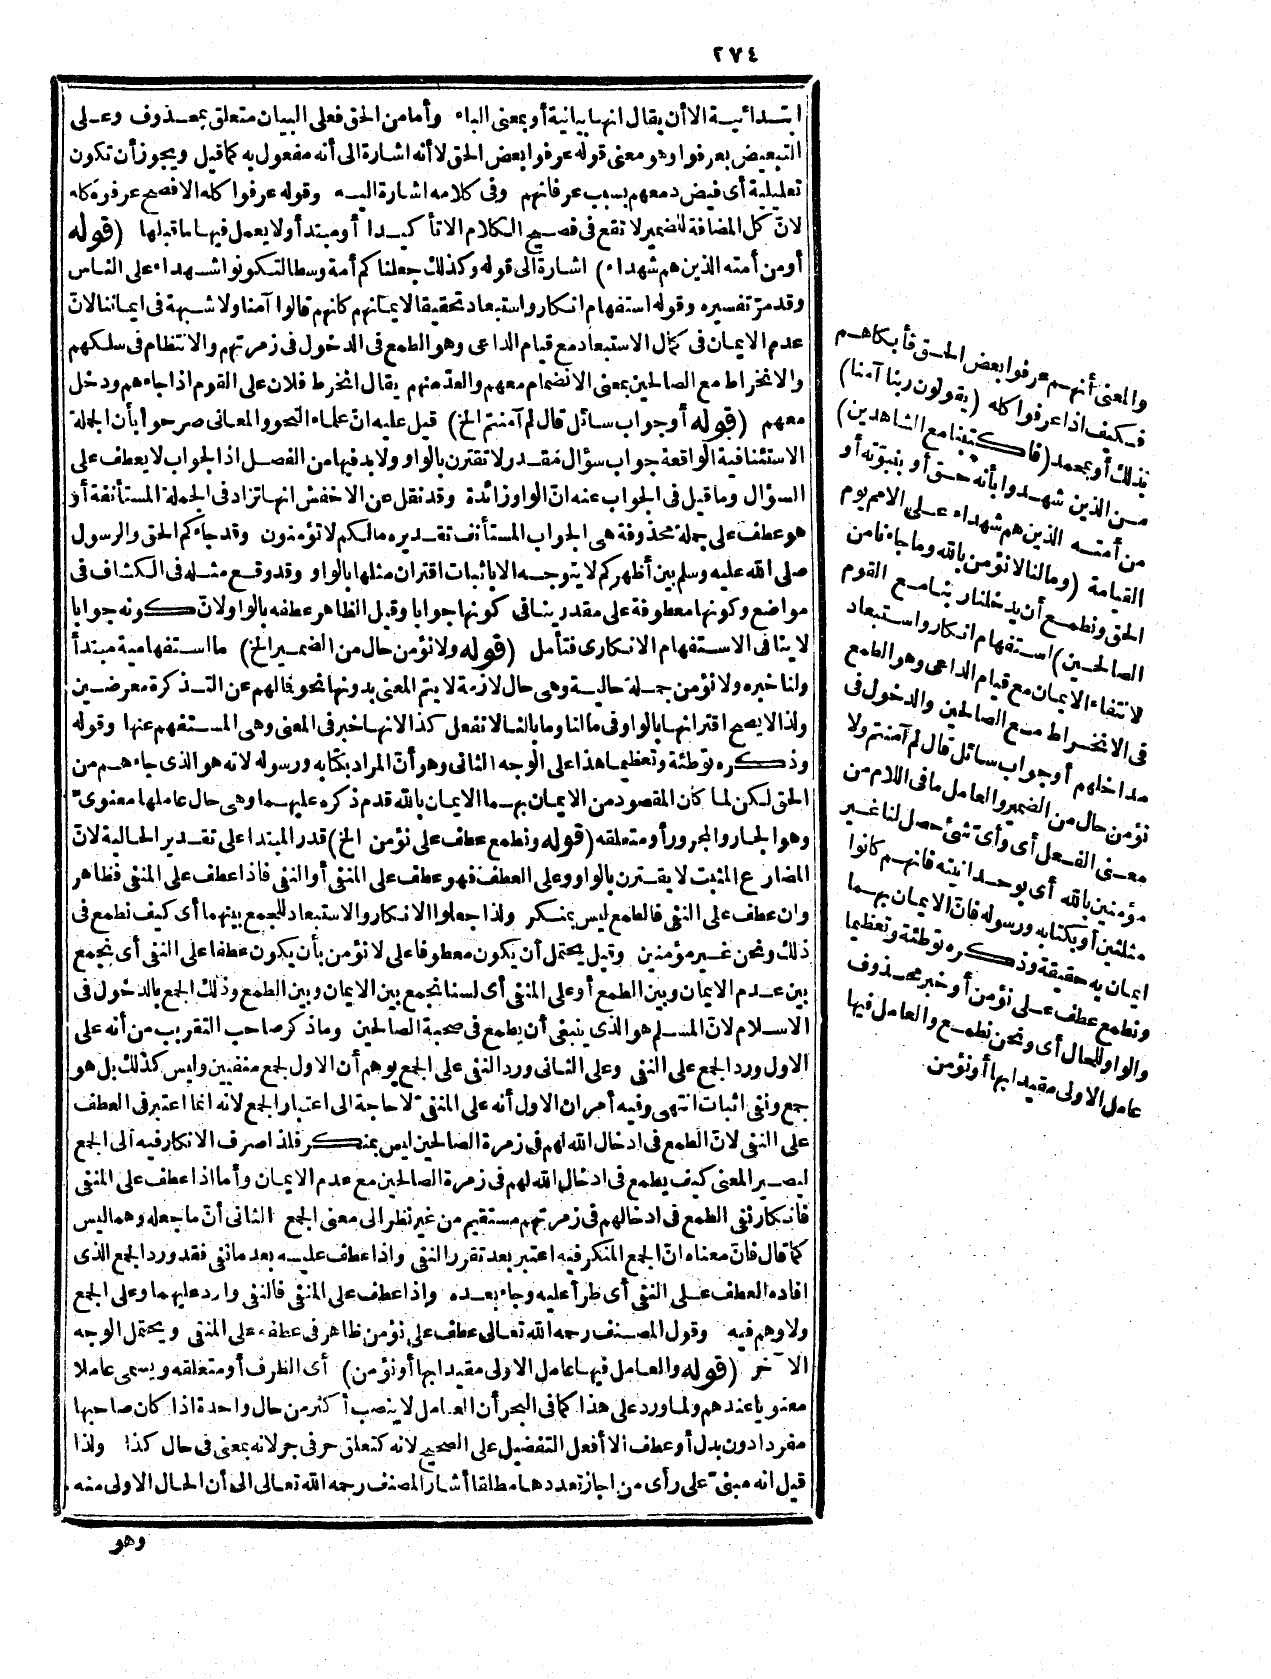 ٢٧٤
ابتدائية الا أن يقال انها بيانية أو بمعنى الباء وأما من الحق فعلى البيان متعلق بمحذوف وعلى
التبعيض بعرفوا وهو معنى قوله عرفوا بعض الحق لا أنه اشارة الى أنه مفعول به كما قيل ويجوز أن تكون
تعليلية أى فيض دمعهم بسبب عرفانهم وفى كلامه اشارة اليه وقوله عرفوا كله الافصح عرفوه كله
لانّ كل المضافة للضمير لا تقع فى فصيح الكلام الا تأكيدا أو مبتدأ ولا يعمل فيها ما قبلها (قوله
أو من أمته الذين هم شهداء) اشارة الى قوله وكذلك جعلناكم أمة وسطا لتكونوا شهداء على الناس
وقد مرّ تفسيره وقوله استفهام انكار واستبعاد تحقيقا لايمانهم كانهم قالوا آمنا ولا شبهة فى ايماننا لانّ
عدم الايمان فى كمال الاستبعاد مع قيام الداعى وهو الطمع فى الدخول فى زمرتهم والانتظام فى سلكهم
والانخراط مع الصالحين بمعنى الانضمام معهم والعدّ منهم يقال انخرط فلان على القوم اذا جاءهم ودخل
معهم (قوله أو جواب سائل قال لم آمنتم الخ) قيل عليه انّ علماء النحو والمعانى صرحوا بأن الجملة
الاستئنافية الواقعة جواب سؤال مقدر لا تقترن بالواو ولا بد فيها من الفصل اذ الجواب لا يعطف على
السؤال وما قيل فى الجواب عنه انّ الواو زائدة وقد نقل عن الاخفش انها تزاد فى الجملة المستأنفة أو
هو عطف على جملة محذوفة هى الجواب المستأنف تقديره مالكم لا تؤمنون وقد جاءكم الحق والرسول
صلى الله عليه وسلم بين أظهركم لا يتوجه الا باثبات اقتران مثلها بالواو وقد وقع مثله فى الكشاف فى
مواضع وكونها معطوفة على مقدر ينافى كونها جوابا وقيل الظاهر عطفه بالواو لانّ كونه جوابا
لا ينافى الاستفهام الانكارى فتأمل (قوله ولا نؤمن حال من الضمير الخ) ما استفهامية مبتدأ
ولنا خبره ولا نؤمن جملة حالية وهى حال لازمة لا يتم المعنى بدونها نحو فما لهم عن التذكرة معرضين
ولذا لا يصح اقترانها بالواو فى ما لنا وما بالنا لا نفعل كذا لانها خبر فى المعنى وهى المستفهم عنها وقوله
وذكره توطئة وتعظيما هذا على الوجه الثانى وهو أنّ المراد بكتابه ورسوله لانه هو الذى جاءهم من
الحق لكن لما كان المقصود من الايمان بهما الايمان بالله قدم ذكره عليهما وهى حال عاملها معنوىّ
وهو الجار والمجرور أو متعلقه (قوله ونطمع عطف على نؤمن الخ) قدر المبتدا على تقدير الحالية لانّ
المضارع المثبت لا يقترن بالواو وعلى العطف فهو عطف على المنفى أو النفى فاذا عطف على المنفى فظاهر
وان عطف على النفى فالطمع ليس بمنكر ولذا جعلوا الانكار والاستبعاد للجمع بينهما أى كيف نطمع فى
ذلك ونحن غير مؤمنين وقيل يحتمل أن يكون معطوفا على لا نؤمن بأن يكون عطفا على النفى أى نجمع
بين عدم الايمان وبين الطمع أو على المنفى أى لسنا نجمع بين الايمان وبين الطمع وذلك الجمع بالدخول فى
الاسلام لانّ المسلم هو الذى ينبغى أن يطمع فى صحبة الصالحين وما ذكر صاحب التقريب من أنه على
الاول ورد الجمع على النفى وعلى الثانى ورد النفى على الجمع يوهم أن الاول لجمع منفيين وليس كذلك بل هو
جمع ونفى اثبات انتهى وفيه أمران الاول أنه على المنفىّ لا حاجة الى اعتبار الجمع لانه انما اعتبر فى العطف
على النفى لانّ الطمع فى ادخال الله لهم فى زمرة الصالحين ليس بمنكر فلذا صرف الانكار فيه الى الجمع
ليصير المعنى كيف يطمع فى ادخال الله لهم فى زمرة الصالحين مع عدم الايمان وأما اذا عطف على المنفى
فانكار نفى الطمع فى ادخالهم فى زمرتهم مستقيم من غير نظر الى معنى الجمع الثانى أنّ ما جعله وهما ليس
كما قال فانّ معناه انّ الجمع المنكر فيه اعتبر بعد تقرر النفى واذا عطف عليه بعد ما نفى فقد ورد الجمع الذى
افاده العطف على النفى أى طرأ عليه وجاء بعده واذا عطف على المنفى فالنفى وارد عليهما وعلى الجمع
ولا وهم فيه وقول المصنف رحمه الله تعالى عطف على نؤمن ظاهر فى عطفه على المنفى ويحتمل الوجه
الآخر (قوله والعامل فيها عامل الاولى مقيدا بها أو نؤمن) أى الظرف أو متعلقه ويسمى عاملا
معنويا عندهم ولما ورد على هذا كما فى البحر أن العامل لا ينصب أكثر من حال واحدة اذا كان صاحبها
مفردا دون بدل أو عطف الا أفعل التفضيل على الصحيح لانه كتعلق حرفى جر لانه بمعنى فى حال كذا ولذا
قيل انه مبنىّ على رأى من اجاز تعددها مطلقا أشار المصنف رحمه الله تعالى الى أن الحال الاولى منه
وهو
والمعنى أنهم عرفوا بعض الحق فأبكاهم
فكيف اذا عرفوا كله (يقولون ربنا آمنا)
بذلك أو بمحمد (فاكتبنا مع الشاهدين)
من الذين شهدوا بأنه حق أو بنبوّته أو
من أمته الذين هم شهداء على الامم يوم
القيامة (وما لنا لا نؤمن بالله وما جاءنا من
الحق ونطمع أن يدخلنا ربنا مع القوم
الصالحين) استفهام انكار واستبعاد
لانتفاء الايمان مع قيام الداعى وهو الطمع
فى الانخراط مع الصالحين والدخول فى
مداخلهم أو جواب سائل قال لم آمنتم ولا
نؤمن حال من الضمير والعامل ما فى اللام من
معنى الفعل أى وأىّ شئ حصل لنا غير
مؤمنين بالله أى بوحدانيته فانهم كانوا
مثلثين أو بكتابه ورسوله فانّ الايمان بهما
ايمان به حقيقة وذكره توطئة وتعظيما
ونطمع عطف على نؤمن أو خبر محذوف
والواو للحال أى ونحن نطمع والعامل فيها
عامل الاولى مقيدا بها أو نؤمن